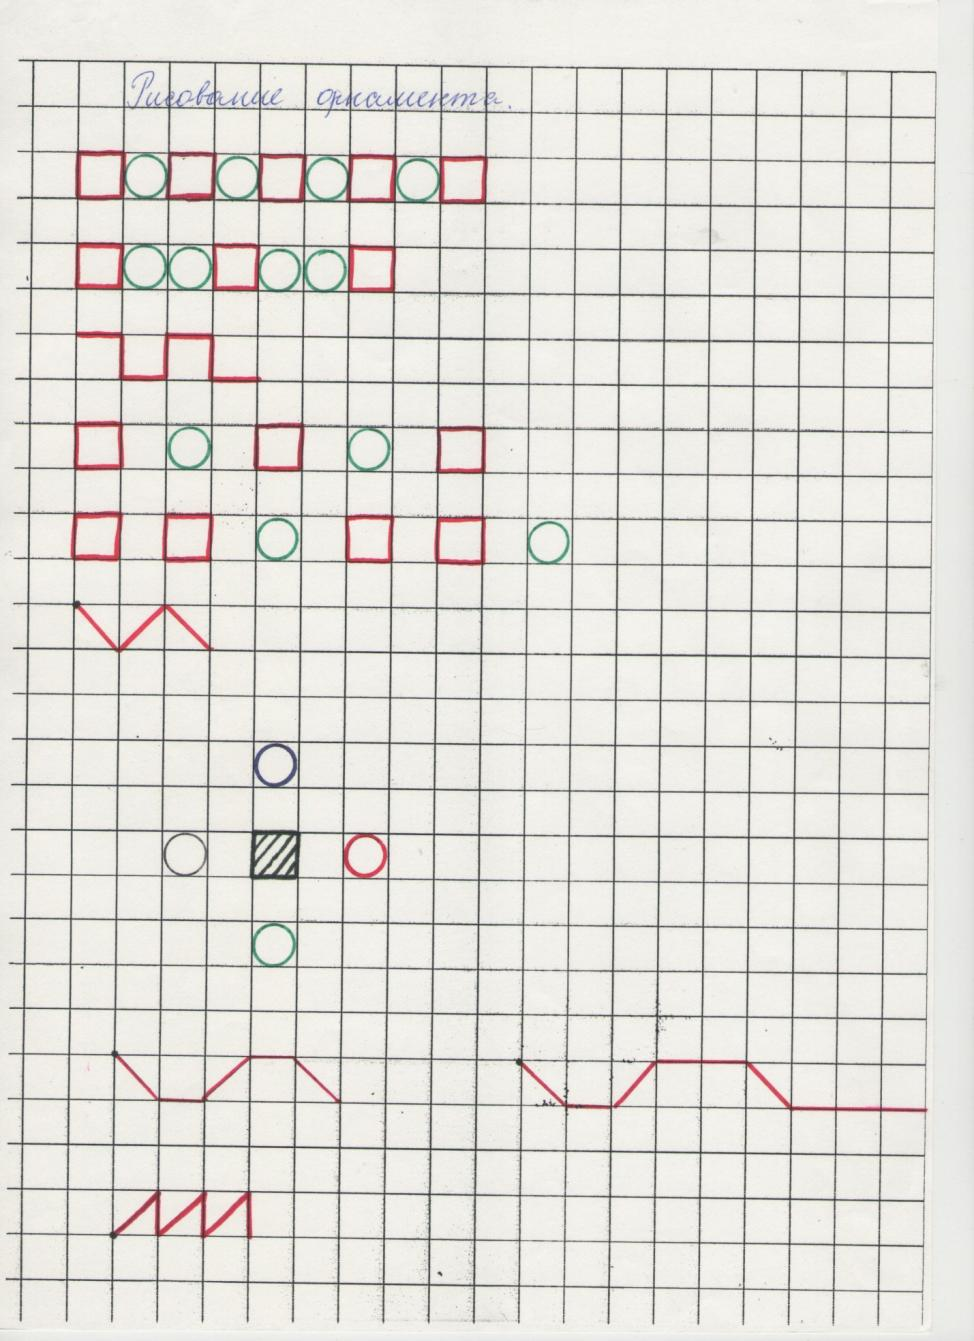 Рисование орнамента.